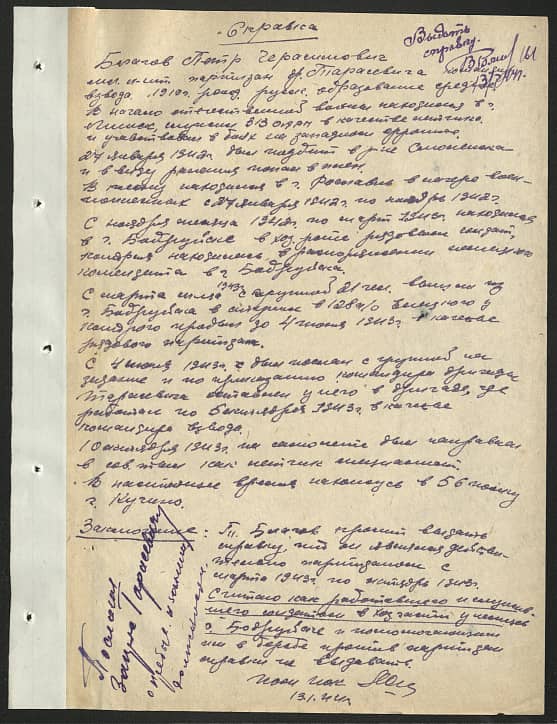 Справка
Выдать
справку.
161
Булагов Петр Черасимович
партизан бр. Тарасевича
взвода. 1910г. рожд, русск. образование средн.
В начало отечественной войны находился в г.
Минск, служил 313 в качестве летчика
и участвовал в боях на западном фронте.
27 января 1942г. был подбит в р-не Смоленска
и в виду ранения попал в плен.
В плену находился в г. Рославль в лагере воен-
нопленных с 27 января 1942г. по ноябрь 1942г.
С ноября месяца 1942г. по март 1943г. находился
в г. Бобруйске в хоз. роте рядовым солдат,
которая находилась в распоряжении немецкого
коменданта в г. Бобруйска.
С марта м-ца 1943г. с группой 21 чел. вышли из
г. Бобруйска в 128 п/о
которого пробыл до 4 июня 1943г. в качестве
рядового партизана.
С 4 июня 1943г. был послан с группой на
задание и по приказанию командира бригады
Тарасевича оставлен у него в бригаде, где
работал по октября 1943г. в качестве
командира взвода.
10 октября 1943г. на самолете был направлен
в сов. тыл как летчик специалист.
В настоящее время нахожусь в 56 полку
г. Кучино.
Заключение: Тт. Булагов просит выдать
справку, что он являлся действи-
тельно партизаном с
марта 1943г. по октябрь 1943г.
Считаю как работавшего и служив-
шего солдатом в хоз части у немцев
г. Бобруйске и помогавшим
им в борьбе против партизан
справки не выдавать.
13.1.44г.